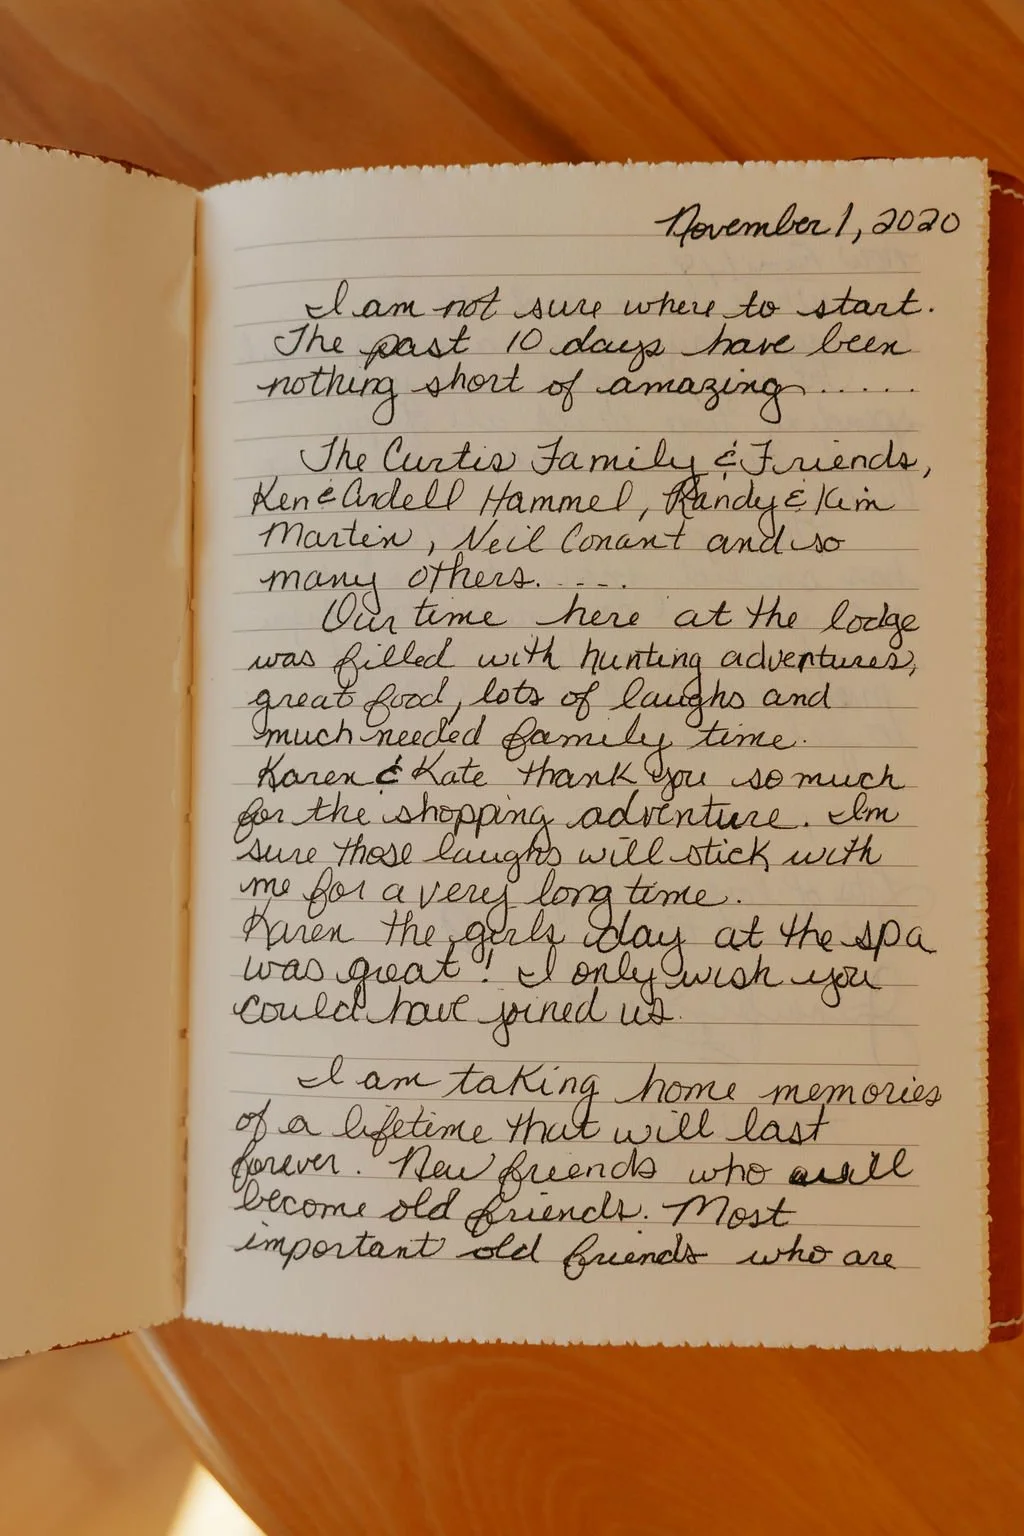 November 1, 2020
I am not sure where to start.
The past 10 days have been
nothing short of amazing.....
The Curtis Family & Friends,
Ken & Ardell Hammel, Randy & Kim
Martin, Neil Conant and so
many others.....
Our time here at the lodge
was filled with hunting adventures,
great food, lots of laughs and
much needed family time.
Karen & Kate thank you so much
for the shopping adventure. Im
sure those laughs will stick with
me for a very long time.
Karen the girls day at the spa
was great! I only wish you
could have joined us.
I am taking home memories
of a lifetime that will last
forever. New friends who will
become old friends. Most
important old friends who are